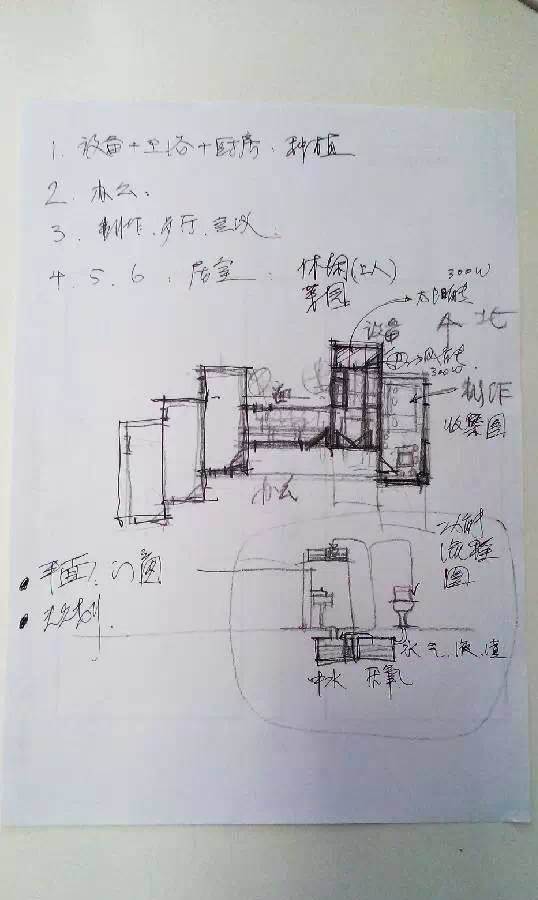 1. 设备+卫浴+厨房、种植
2. 办公.
3. 制作.客厅.会议.
4. 5. 6. 居室. 休闲(2人)
菜园
300W
太阳能
设备
北
风能
300W
制作
收聚图
办公
功能
流程
图
平面、门窗
气、液、渣
中水 厌氧